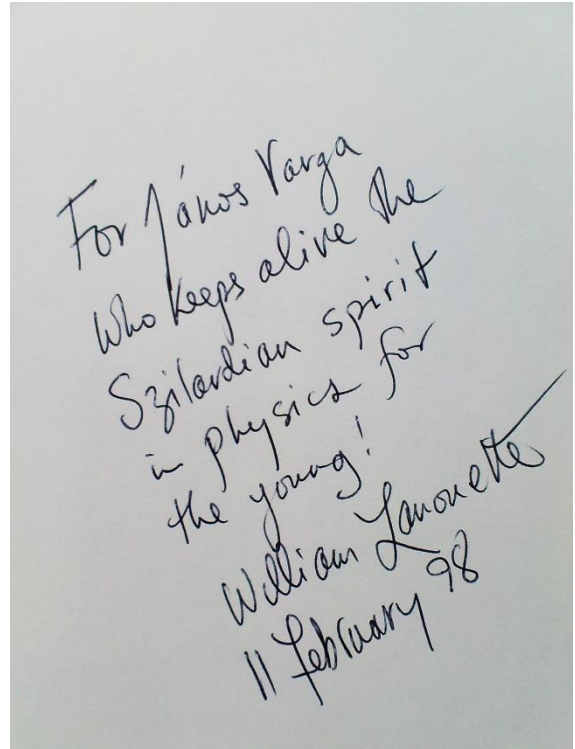 For János Varga
who keeps alive the
Szilardian spirit
in physics for
the young!
William Lanouette
11 February 98